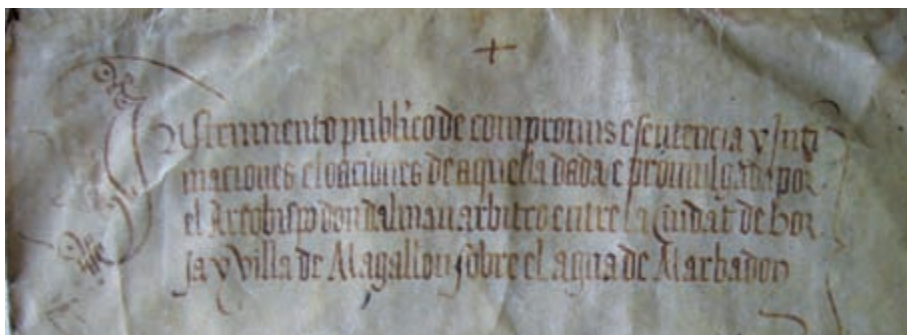 +
Instrumento publico de compromis e sentencia y Inti
maciones e loaciones de aquella dada e promulgada por
el Arcobispo don dalmau arbitro entre la Ciudat de bor
ja y villa de Magallon sobre el agua de Marbadon